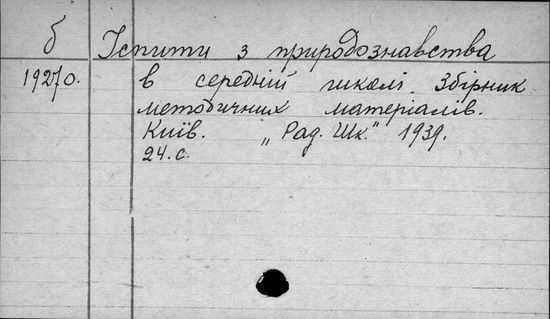 б Іспити з природознавства
19270. в середній школі. Збірник
методичних матеріалів.
Київ. „Рад. Шк." 1939.
24. с.